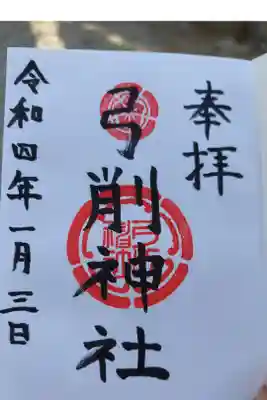 奉拝
弓削神社
令和四年一月三日